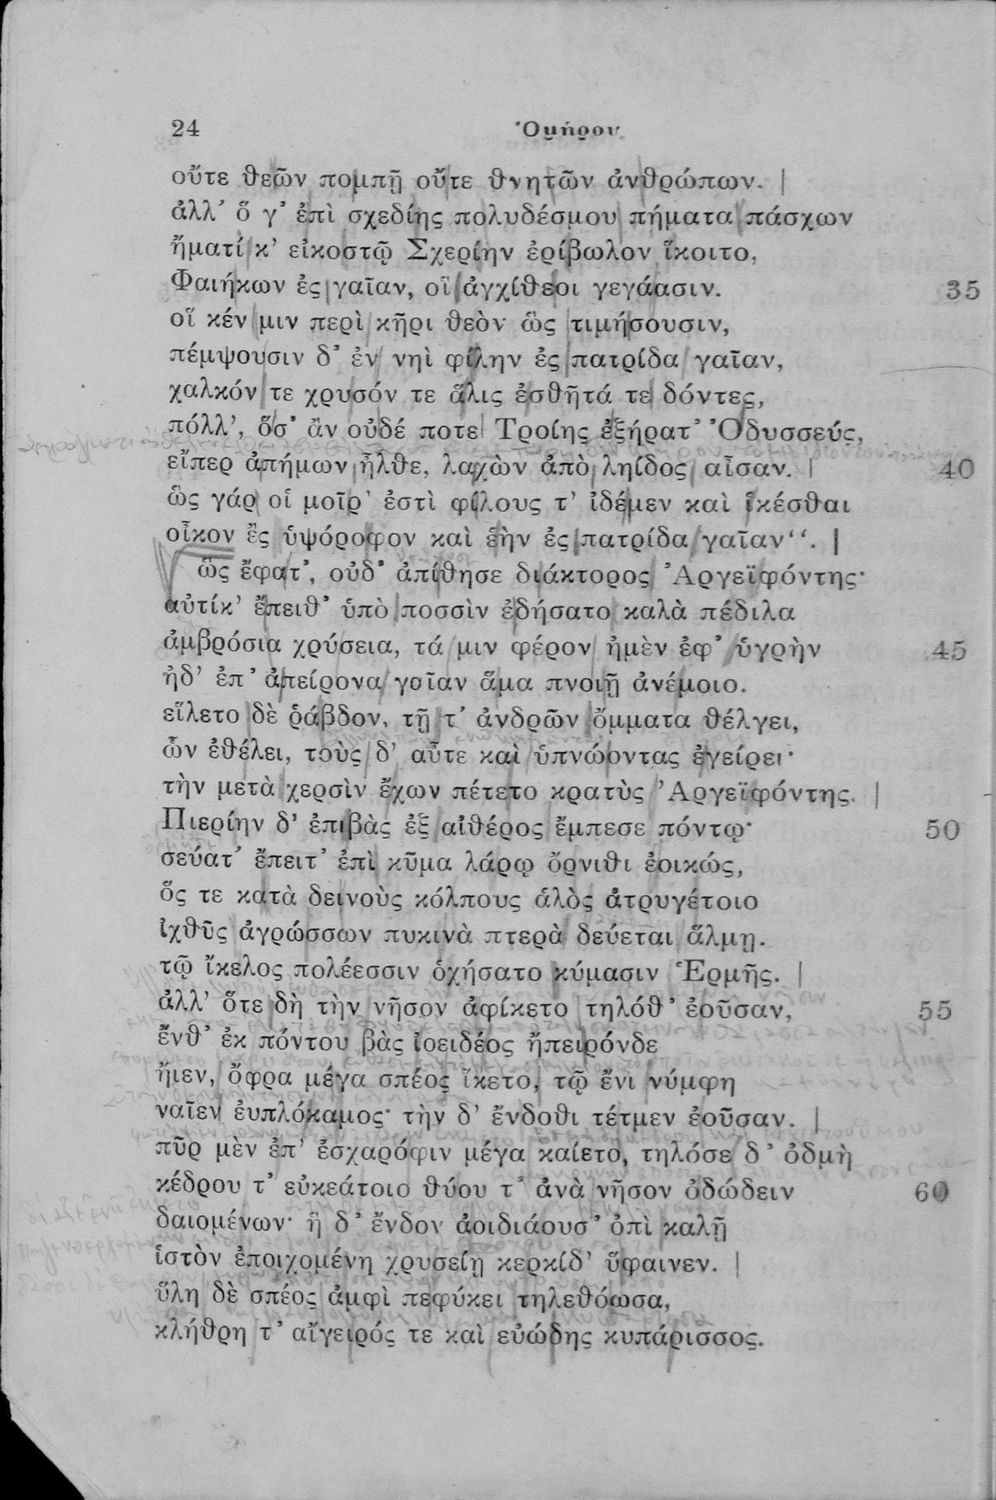 24 Ὁμήρου
οὔτε θεῶν πομπῇ οὔτε θνητῶν ἀνθρώπων.
ἀλλ’ ὅ γ’ ἐπὶ σχεδίης πολυδέσμου πήματα πάσχων
ἤματί κ’ εἰκοστῷ Σχερίην ἐρίβωλον ἵκοιτο,
Φαιήκων ἐς γαῖαν, οἳ ἀγχίθεοι γεγάασιν. 35
οἵ κέν μιν περὶ κῆρι θεὸν ὣς τιμήσουσιν,
πέμψουσιν δ’ ἐν νηὶ φίλην ἐς πατρίδα γαῖαν,
χαλκόν τε χρυσόν τε ἅλις ἐσθῆτά τε δόντες,
πόλλ’, ὅσ’ ἂν οὐδέ ποτε Τροίης ἐξήρατ’ Ὀδυσσεύς,
εἴπερ ἀπήμων ἦλθε, λαχὼν ἀπὸ ληίδος αἶσαν. 40
ὣς γάρ οἱ μοῖρ’ ἐστὶ φίλους τ’ ἰδέμεν καὶ ἱκέσθαι
οἶκον ἐς ὑψόροφον καὶ ἑὴν ἐς πατρίδα γαῖαν“.
ὣς ἔφατ’, οὐδ’ ἀπίθησε διάκτορος Ἀργεϊφόντης·
αὐτίκ’ ἔπειθ’ ὑπὸ ποσσὶν ἐδήσατο καλὰ πέδιλα
ἀμβρόσια χρύσεια, τά μιν φέρον ἠμὲν ἐφ’ ὑγρὴν 45
ἠδ’ ἐπ’ ἀπείρονα γαῖαν ἅμα πνοιῇ ἀνέμοιο.
εἵλετο δὲ ῥάβδον, τῇ τ’ ἀνδρῶν ὄμματα θέλγει,
ὧν ἐθέλει, τοὺς δ’ αὖτε καὶ ὑπνώοντας ἐγείρει·
τὴν μετὰ χερσὶν ἔχων πέτετο κρατὺς Ἀργεϊφόντης.
Πιερίην δ’ ἐπιβὰς ἐξ αἰθέρος ἔμπεσε πόντῳ· 50
σεύατ’ ἔπειτ’ ἐπὶ κῦμα λάρῳ ὄρνιθι ἐοικώς,
ὅς τε κατὰ δεινοὺς κόλπους ἁλὸς ἀτρυγέτοιο
ἰχθῦς ἀγρώσσων πυκινὰ πτερὰ δεύεται ἅλμῃ.
τῷ ἴκελος πολέεσσιν ὀχήσατο κύμασιν Ἑρμῆς.
ἀλλ’ ὅτε δὴ τὴν νῆσον ἀφίκετο τηλόθ’ ἐοῦσαν, 55
ἔνθ’ ἐκ πόντου βὰς ἰοειδέος ἤπειρόνδε
ἤιεν, ὄφρα μέγα σπέος ἵκετο, τῷ ἔνι νύμφη
ναῖεν ἐυπλόκαμος· τὴν δ’ ἔνδοθι τέτμεν ἐοῦσαν.
πῦρ μὲν ἐπ’ ἐσχαρόφιν μέγα καίετο, τηλόσε δ’ ὀδμὴ
κέδρου τ’ εὐκεάτοιο θύου τ’ ἀνὰ νῆσον ὀδώδειν 60
δαιομένων· ἡ δ’ ἔνδον ἀοιδιάουσ’ ὀπὶ καλῇ
ἱστὸν ἐποιχομένη χρυσείῃ κερκίδ’ ὕφαινεν.
ὕλη δὲ σπέος ἀμφὶ πεφύκει τηλεθόωσα,
κλήθρη τ’ αἴγειρός τε καὶ εὐώδης κυπάρισσος.